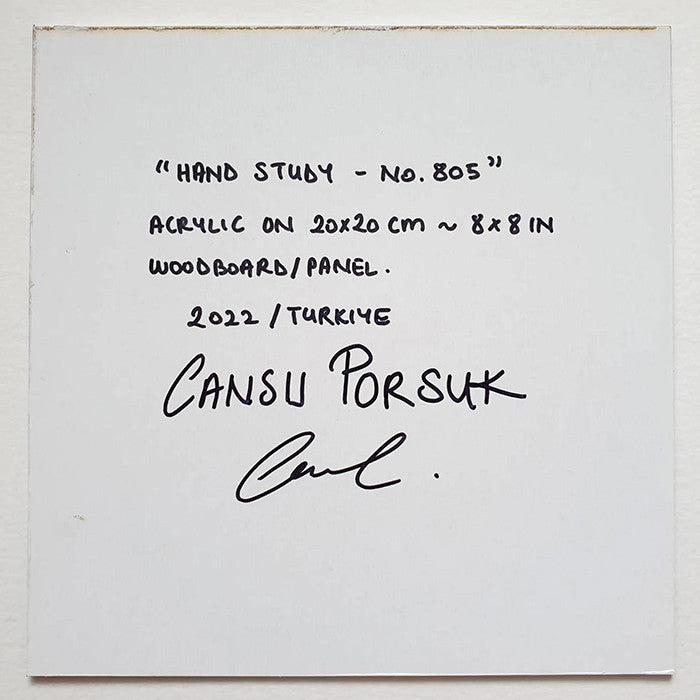 "HAND STUDY - NO. 805"
ACRYLIC ON 20x20 cm ~ 8x8 IN
WOODBOARD/PANEL.
2022 / TURKIYE
CANSU PORSUK